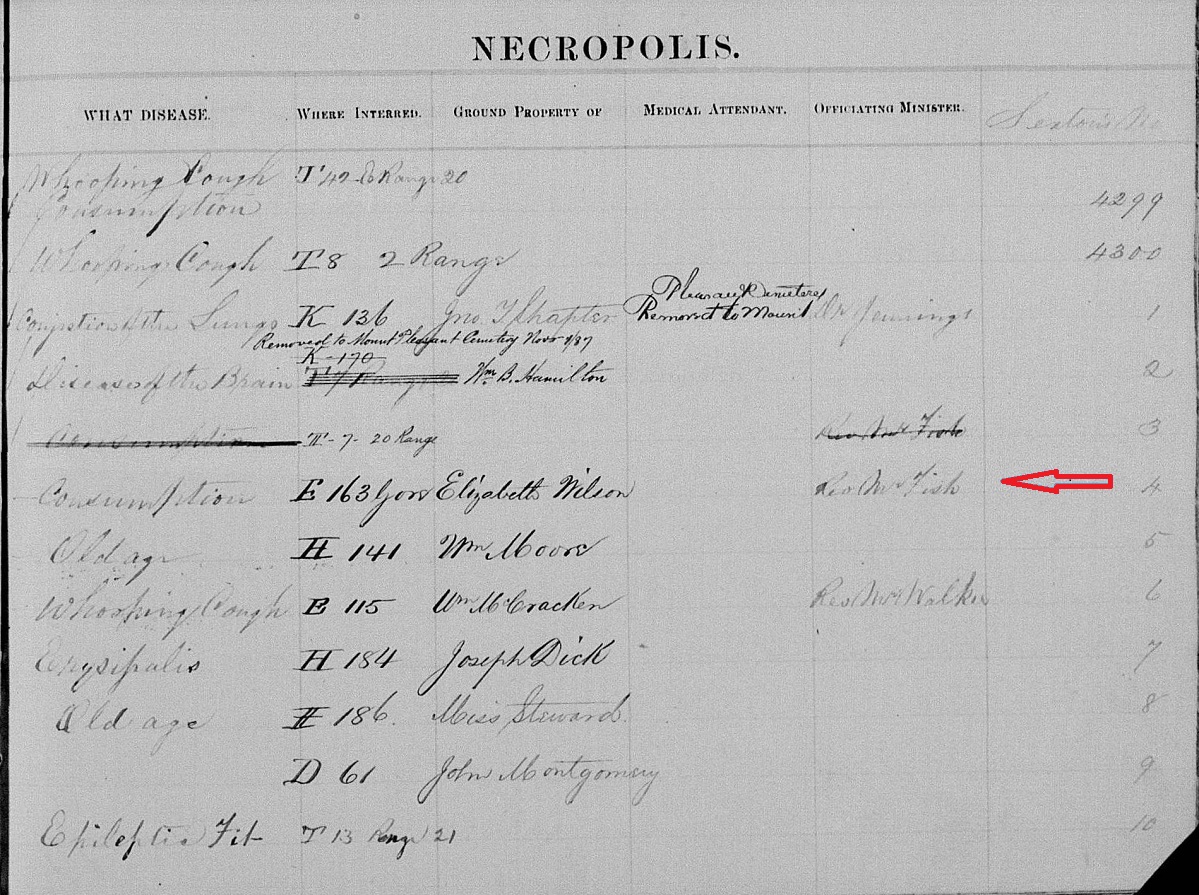 NECROPOLIS.
WHAT DISEASE. WHERE INTERRED. GROUND PROPERTY OF MEDICAL ATTENDANT. OFFICIATING MINISTER. Sextons No
Whooping Cough T 42 Range 20
Consumption 4299
Whooping Cough T 8 2 Range 4300
Pleasant Cemetery
Congestion of the Lungs K 136 Jno. T Shapter Removed to Mount Dr Jennings 1
Removed to Mount Pleasant Cemetery Novr
K-170
Disease of the Brain T 7 Range Wm B. Hamilton 2
Consumption T-7-20 Range Rev Mr Fish 3
Consumption E 163 Elizabeth Wilson Rev Mr Fish 4
Old age H 141 Wm Moore 5
Whooping Cough E 115 Wm McCracken Rev Mr Walker 6
Erysipalis H 184 Joseph Dick 7
Old age 186. Miss Steward. 8
D 61 John Montgomery 9
Epileptic Fit T 13 Range 21 10